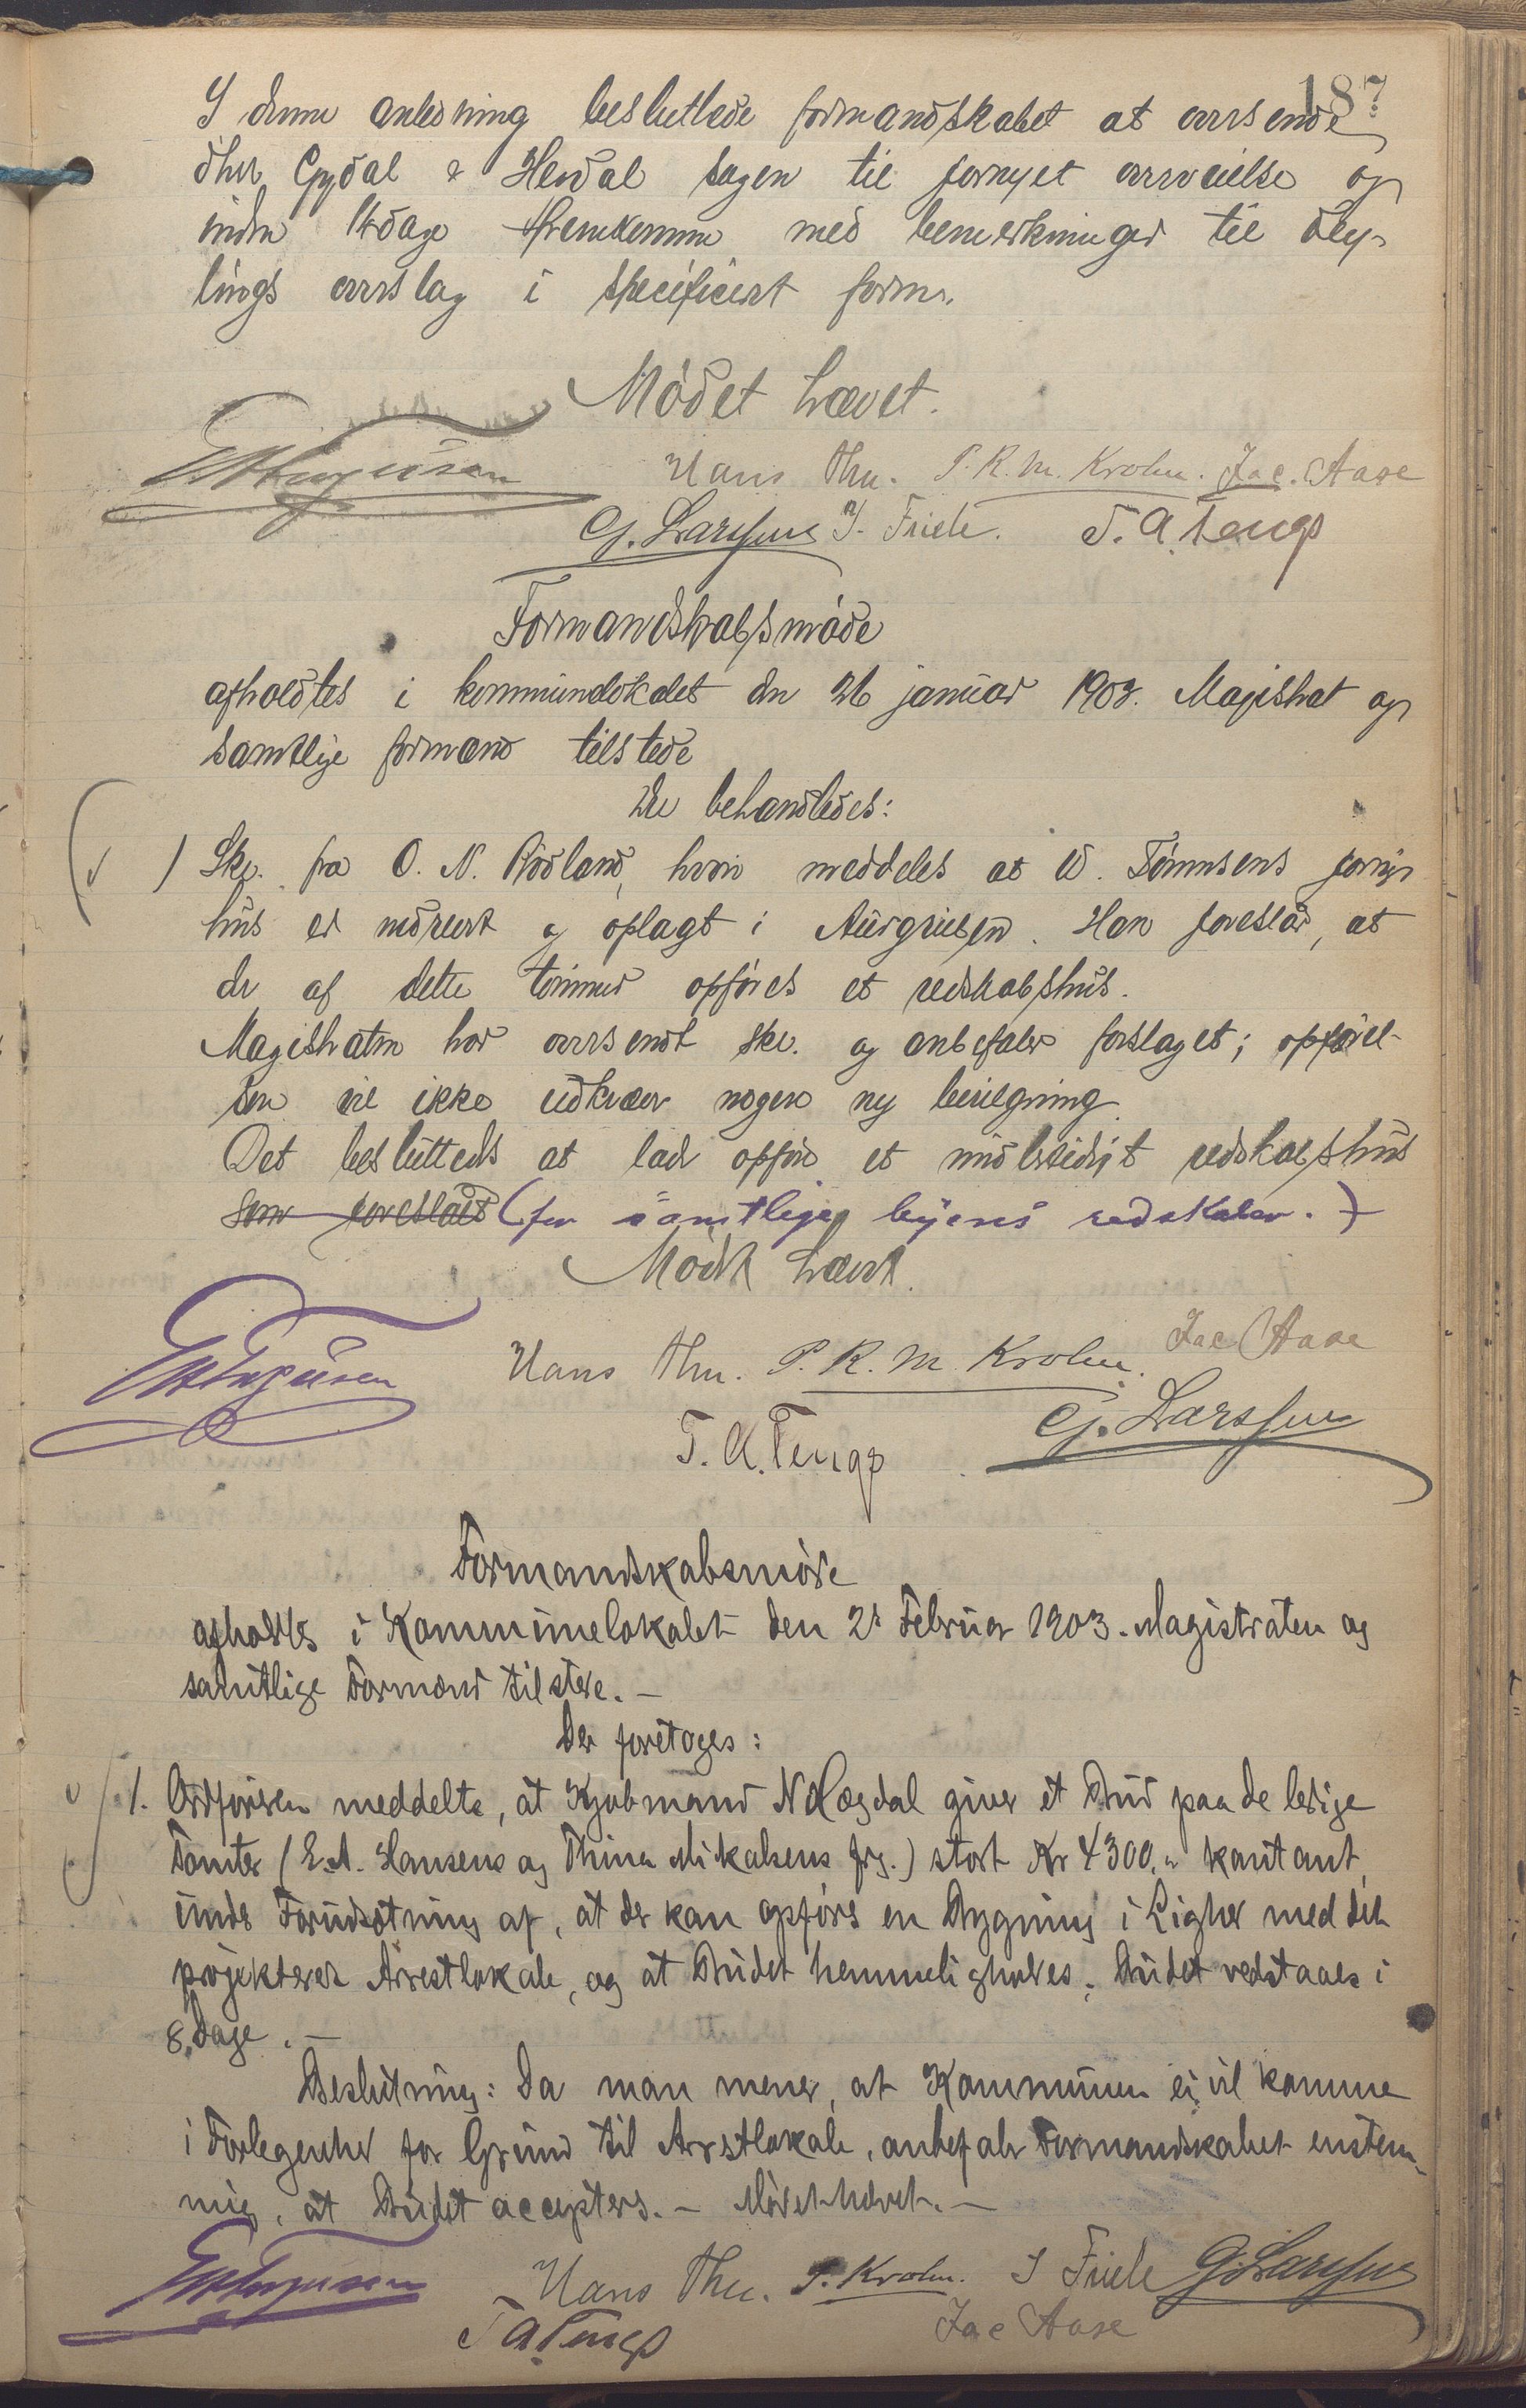 187
I denne anledning besluttede formandskabet at oversende
dhr. Gydal & Herdal sagen til fornyet overveielse og
inden 14 dage fremkomme med bemerkninger til
lings overslag i specificert form.
Mödet hævet.
Hans Thu. P. R. M. Krohn. Jac. Aase
G. Larssen I. Friele. T. A. Tengs
Formandskabsmöde
afholdtes i kommunelokalet den 26 januar 1903. Magistrat og
samtlige formænd tilstede
Der behandledes:
1 Skr. fra O. N. Rödland, hvori meddeles at W. Tönnesens
hus er nedrevet og oplagt i Han foreslår, at
der af dette tömmer opföres et redskabshus.
Magistraten har oversendt skr. og anbefaler forslaget; opförel-
sen vil ikke udkræve nogen ny bevilgning.
Det besluttedes at lade opföre et redskabshus
som foreslået (for samtlige byens redskaber.)
Mödet hævet.
Hans Thu. P. R. M. Krohn. Jac Aase
T. A. Tengs G. Larssen
Formandskabsmöde
afholdtes i Kommunelokalet den 2d Februar 1903. Magistraten og
samtlige Formænd tilstede. —
Der foretoges:
1. Ordföreren meddelte, at Kjøbmand N. giver et Bud paa de ledige
Tomter (E. A. Hansens og Thina Mikalsens frg.) stort Kr 4300,- kontant,
under Forudsætning af, at der kan opföres en Bygning i Lighed med det
projekterede Arrestlokale, og at Budet hemmeligholdes; Budet vedstaaes i
8 Dage. —
Beslutning: Da man mener, at Kommunen ei vil komme
i Forlegenhed for Grund til Arrestlokale, anbefaler Formandskabet enstem-
mig, at Budet accepteres. — Mödet hævet. —
Hans Thu. P. Krohn. I Friele G. Larssen
T A Tengs Jac Aase